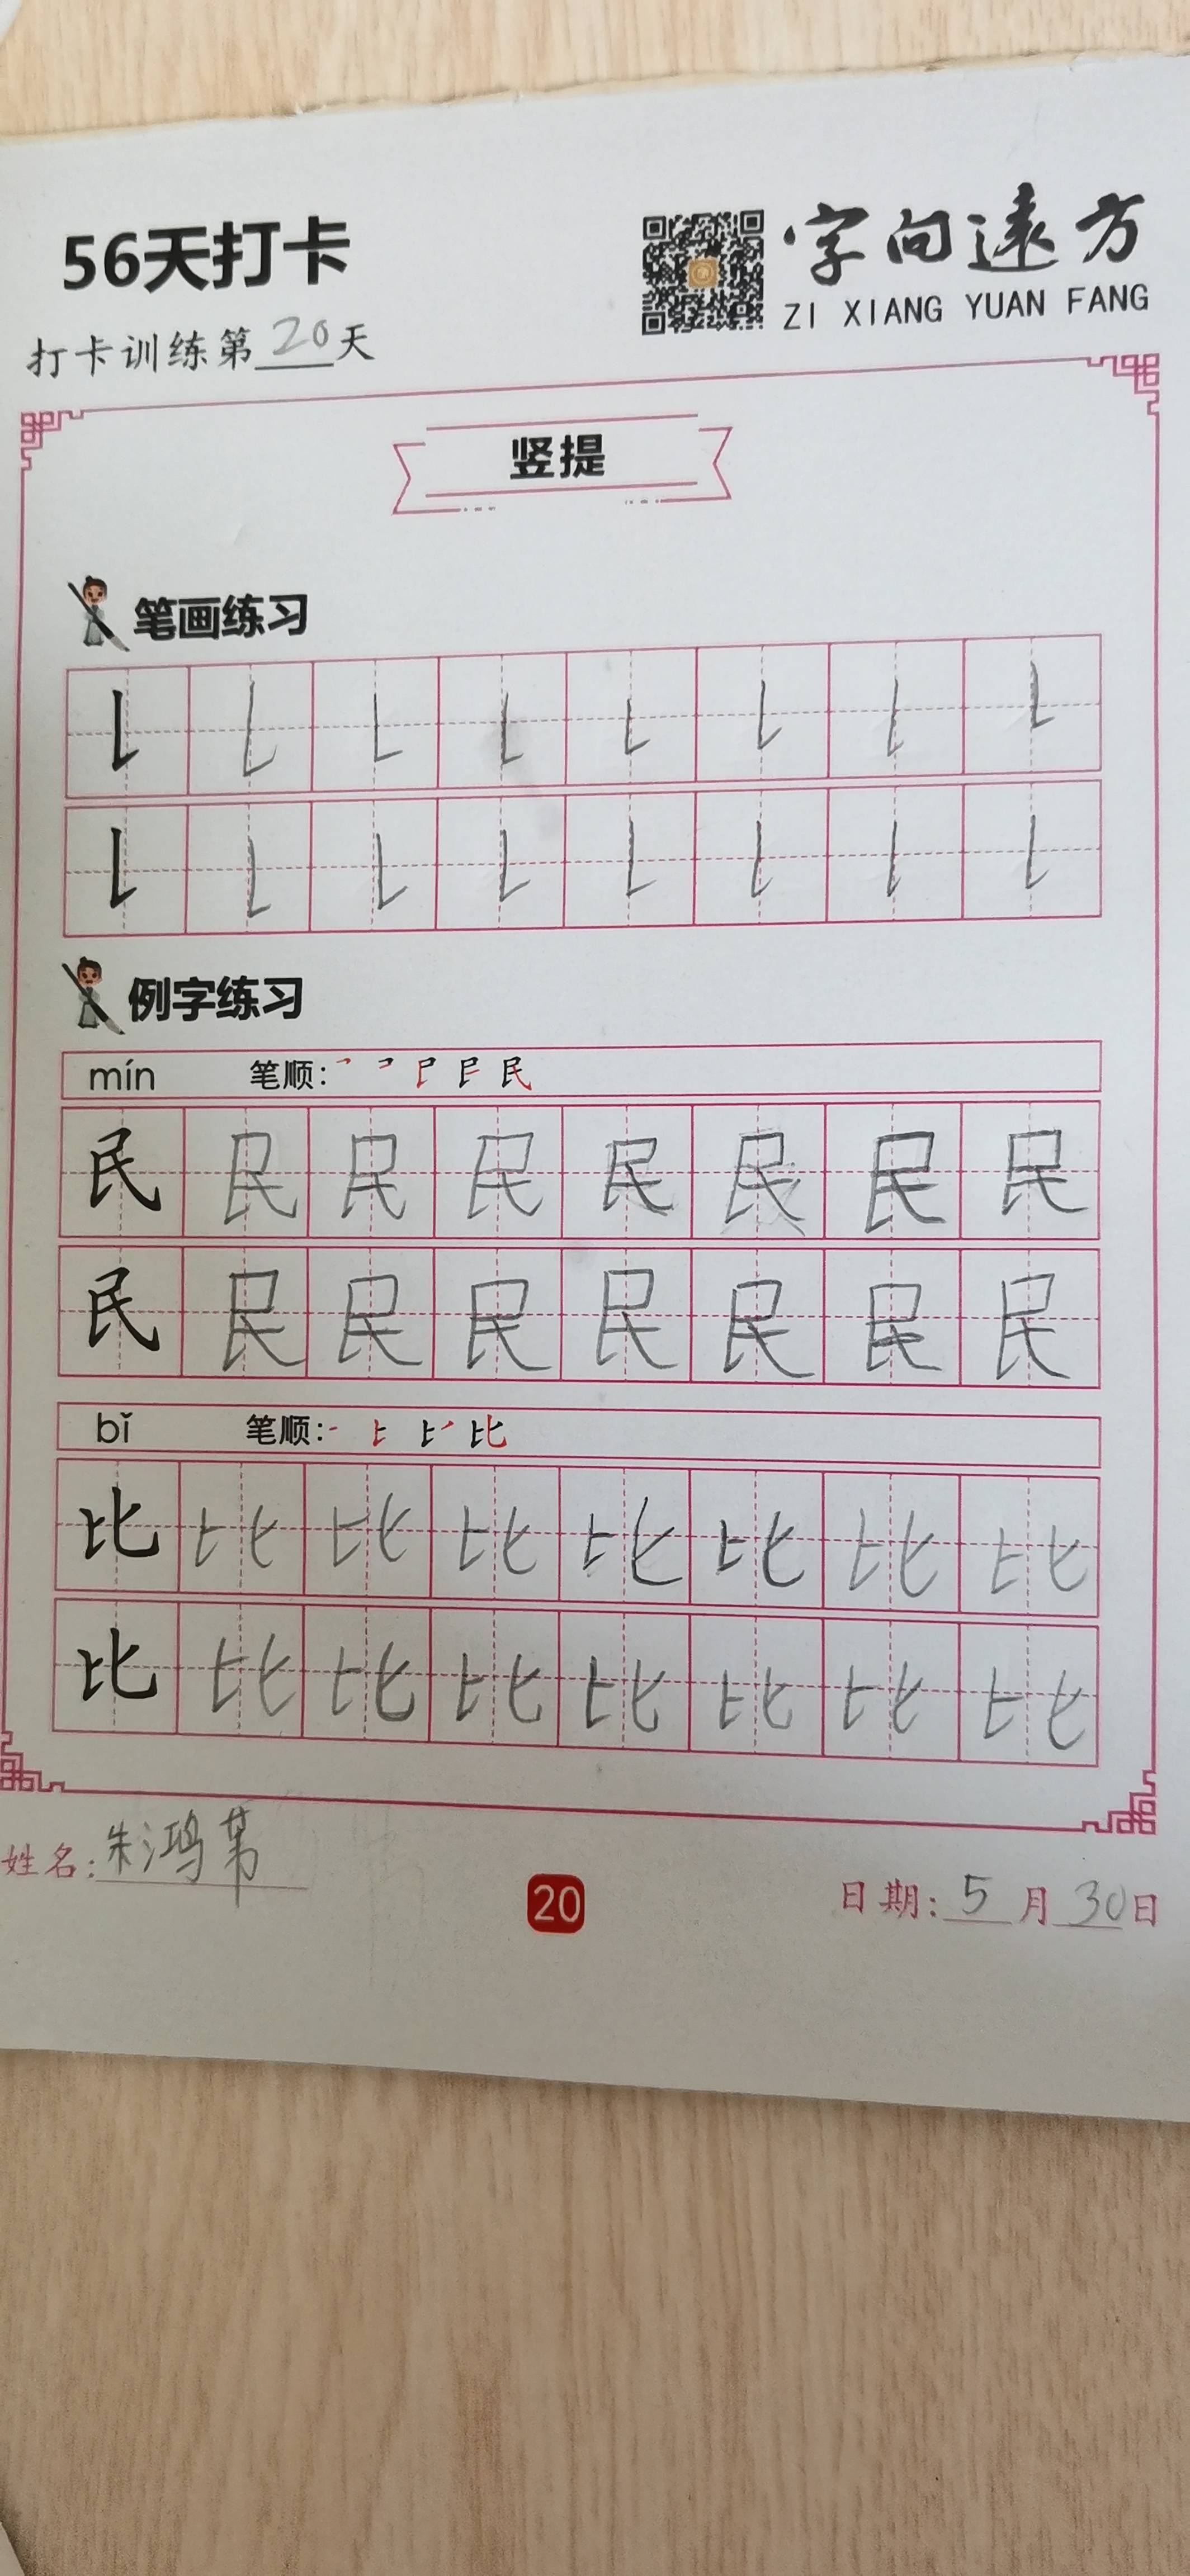 56天打卡
字向遠方
ZI XIANG YUAN FANG
打卡训练第20天
竖提
笔画练习
例字练习
mín 笔顺: 民
民 民 民 民 民 民 民 民
民 民 民 民 民 民 民 民
bǐ 笔顺: 比
比 比 比 比 比 比 比 比
比 比 比 比 比 比 比 比
姓名: 朱鸿
20
日期: 5月30日